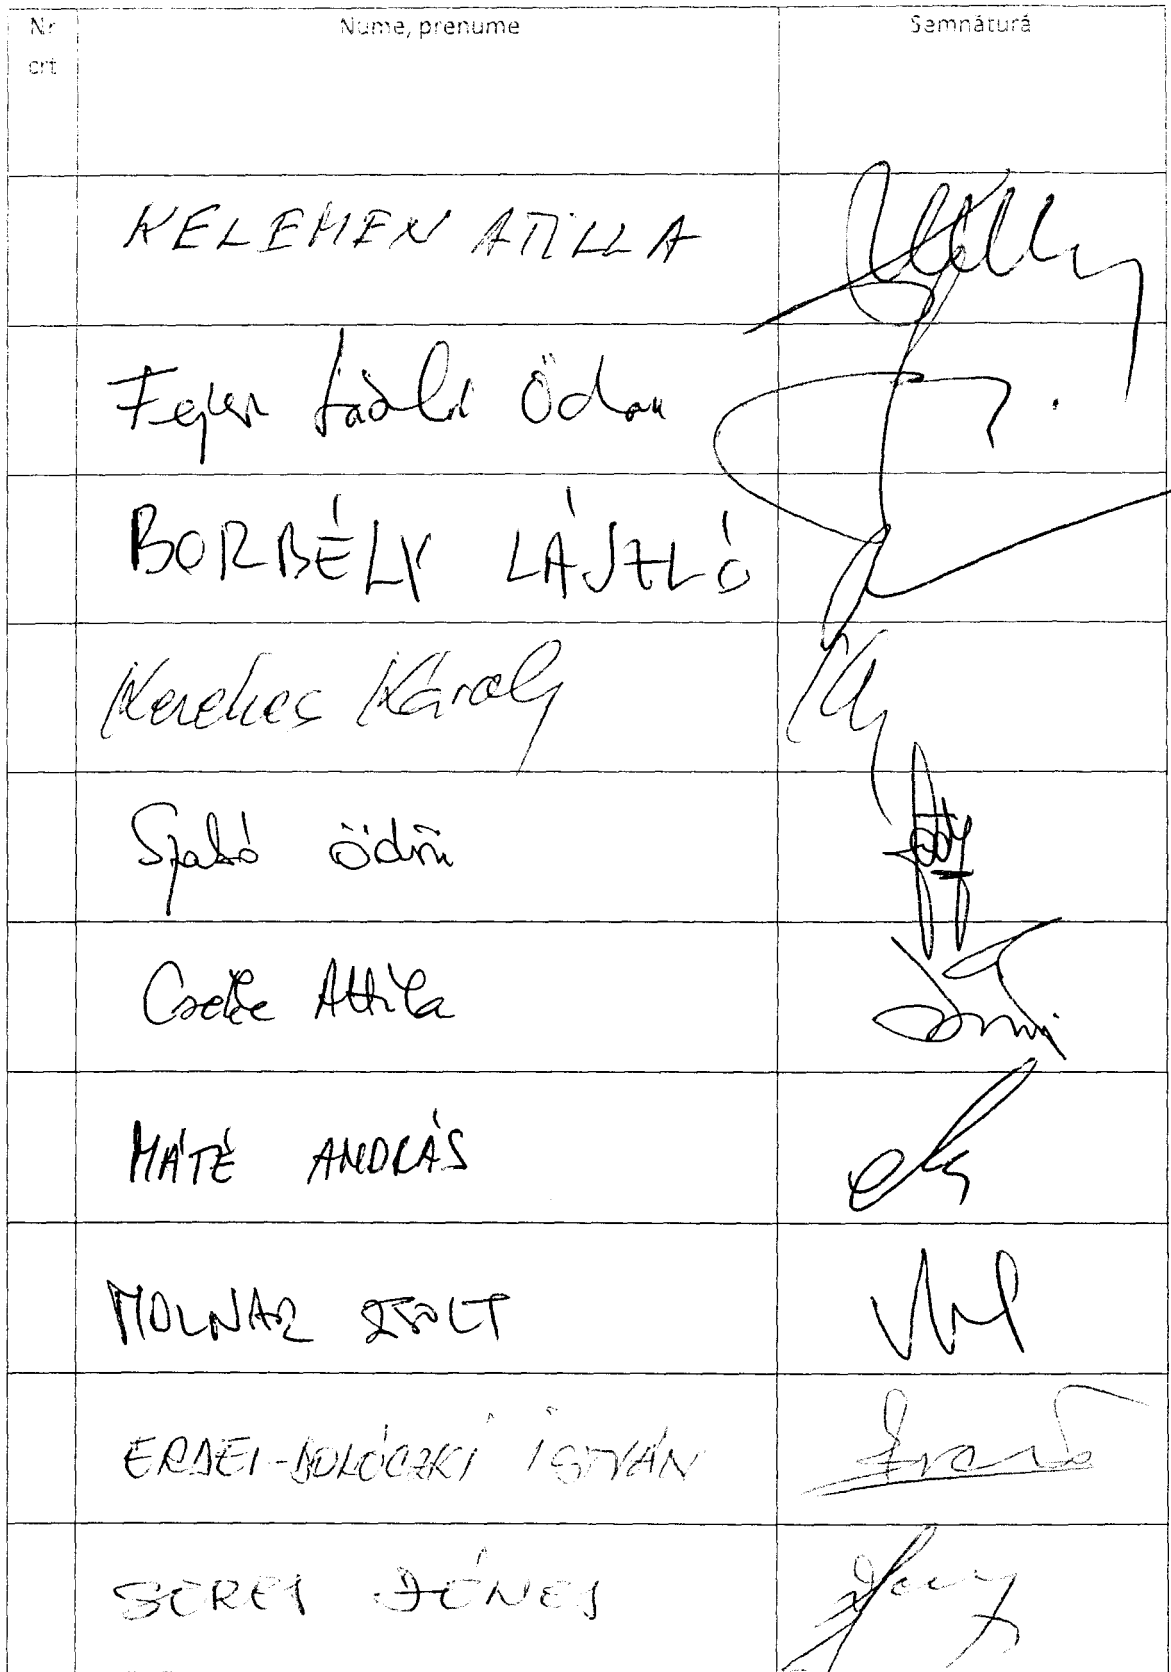 Nr Nume, prenume Semnătură
crt
KELEMEN ATILLA
Fejér László Ödön
BORBÉLY LÁSZLÓ
Kerekes Károly
Szabó Ödön
Cseke Attila
MÁTÉ ANDRÁS
MOLNAR ZSOLT
ERDEI-DOLÓCZKI ISTVÁN
SERES DÉNES